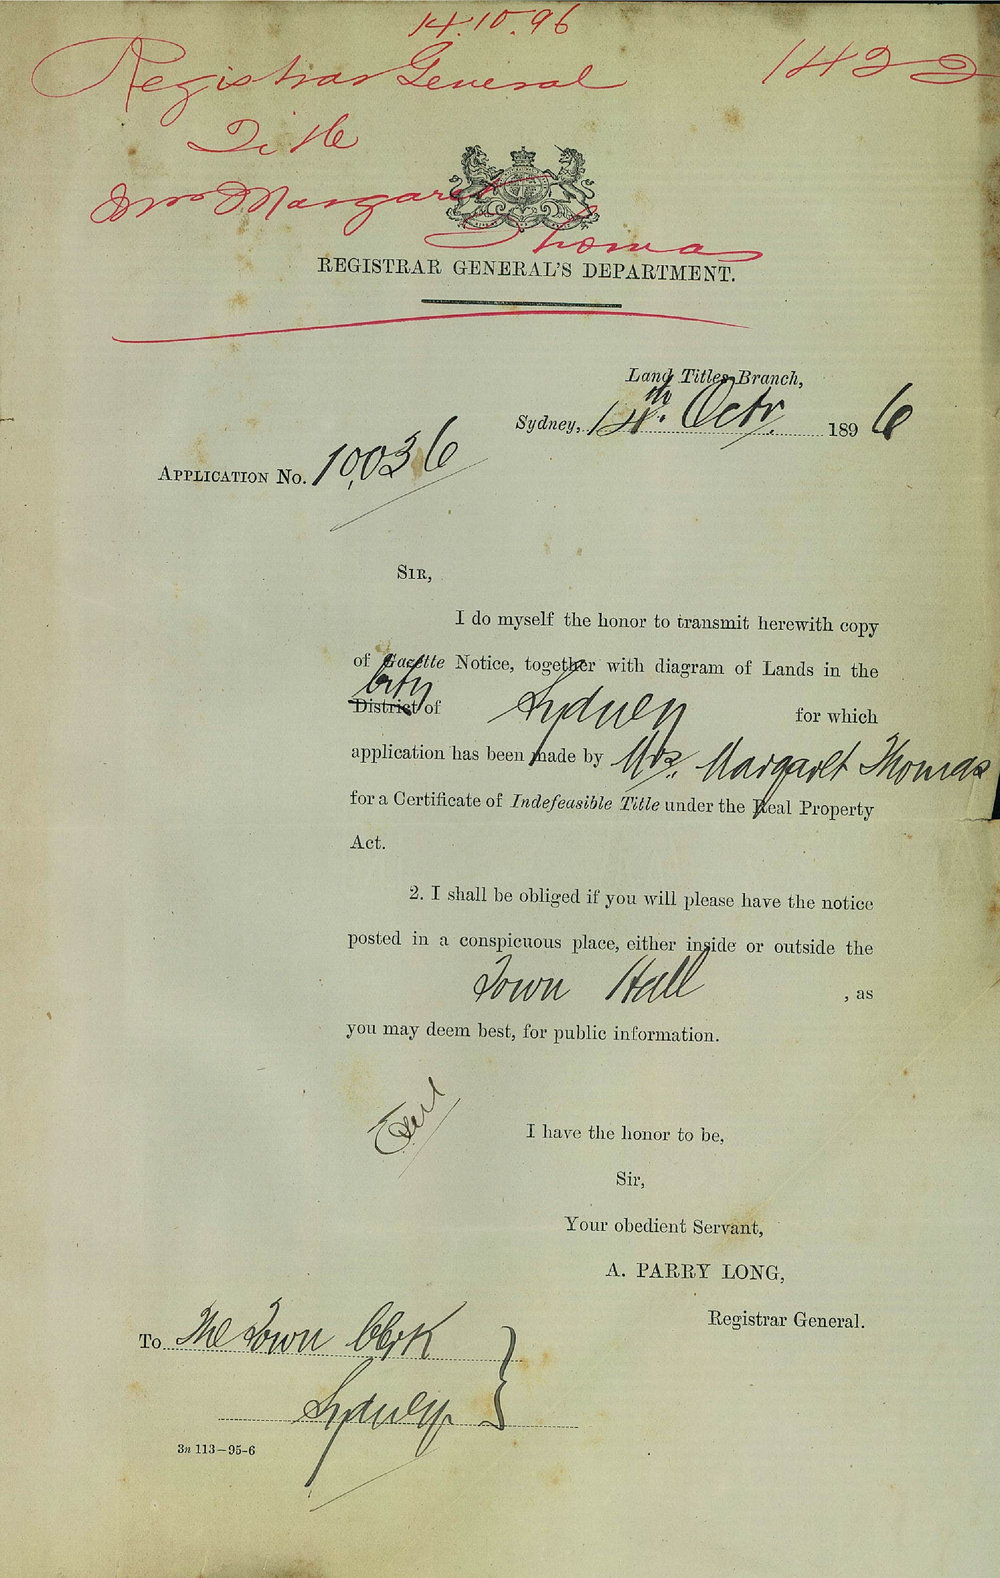 14.10.96
Registrar General 1422
Title
Mrs Margaret
Thomas
REGISTRAR GENERAL'S DEPARTMENT.
Land Titles Branch,
Sydney, 14th. Octr. 1896
APPLICATION No. 10,036
SIR,
I do myself the honor to transmit herewith copy
of Gazette Notice, together with diagram of Lands in the
City
District of Sydney for which
application has been made by Mrs. Margaret Thomas
for a Certificate of Indefeasible Title under the Real Property
Act.
2. I shall be obliged if you will please have the notice
posted in a conspicuous place, either inside or outside the
Town Hall , as
you may deem best, for public information.
I have the honor to be,
Sir,
Your obedient Servant,
A. PARRY LONG,
Registrar General.
To The Town Clerk
Sydney
3n 113—95-6